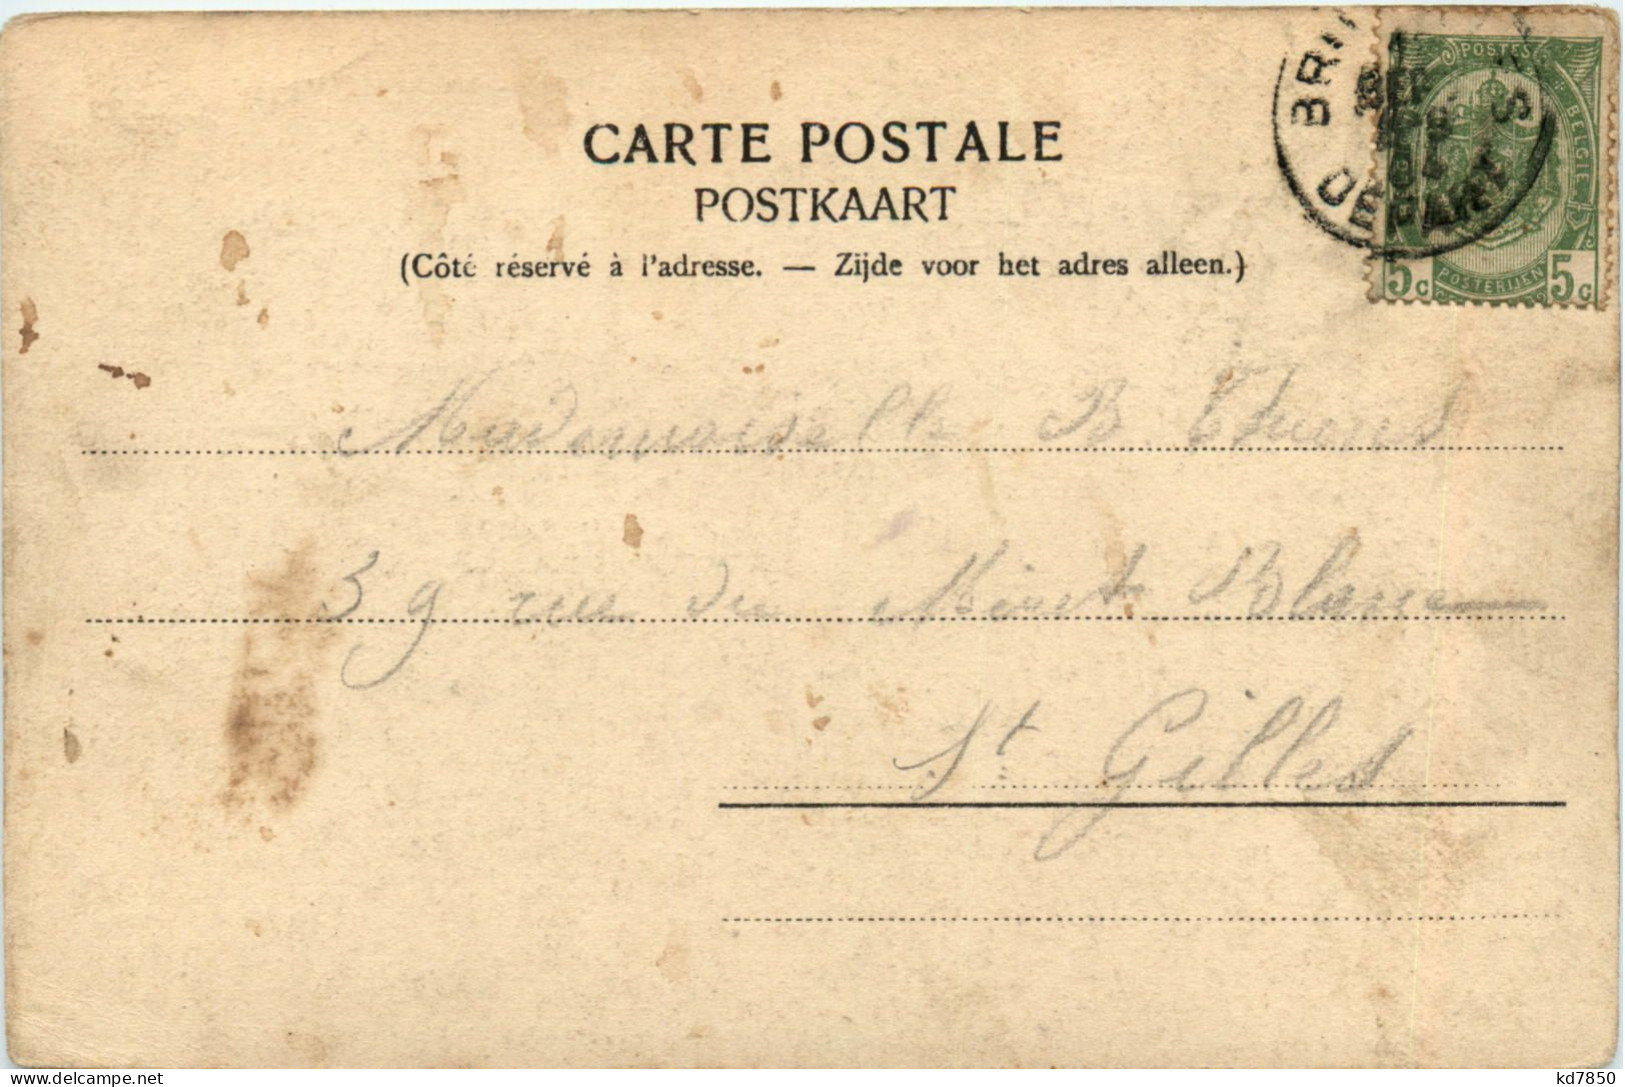 CARTE POSTALE
POSTKAART
(Côté réservé à l'adresse. — Zijde voor het adres alleen.)
POSTES
BELGIE
5c POSTERIJEN 5c
DEPART
Mademoiselle B. Thuns
39 rue du Mont Blanc
St Gilles
kd7850